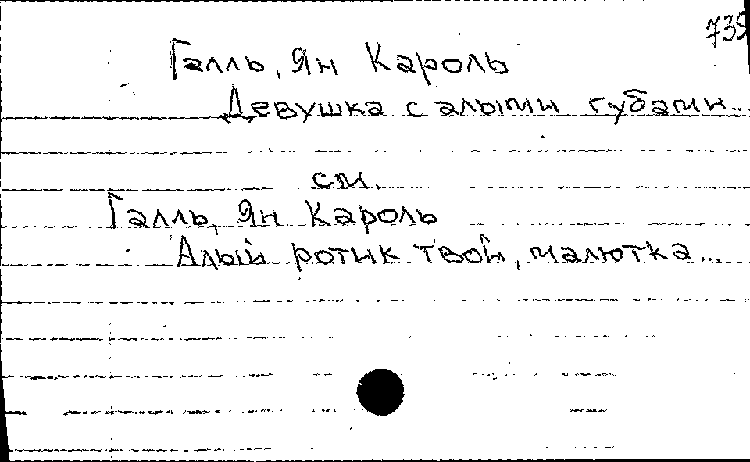 739
Галль, Ян Кароль
Девушка с алыми губами...
см.
Галль, Ян Кароль
Алый ротик твой, малютка...